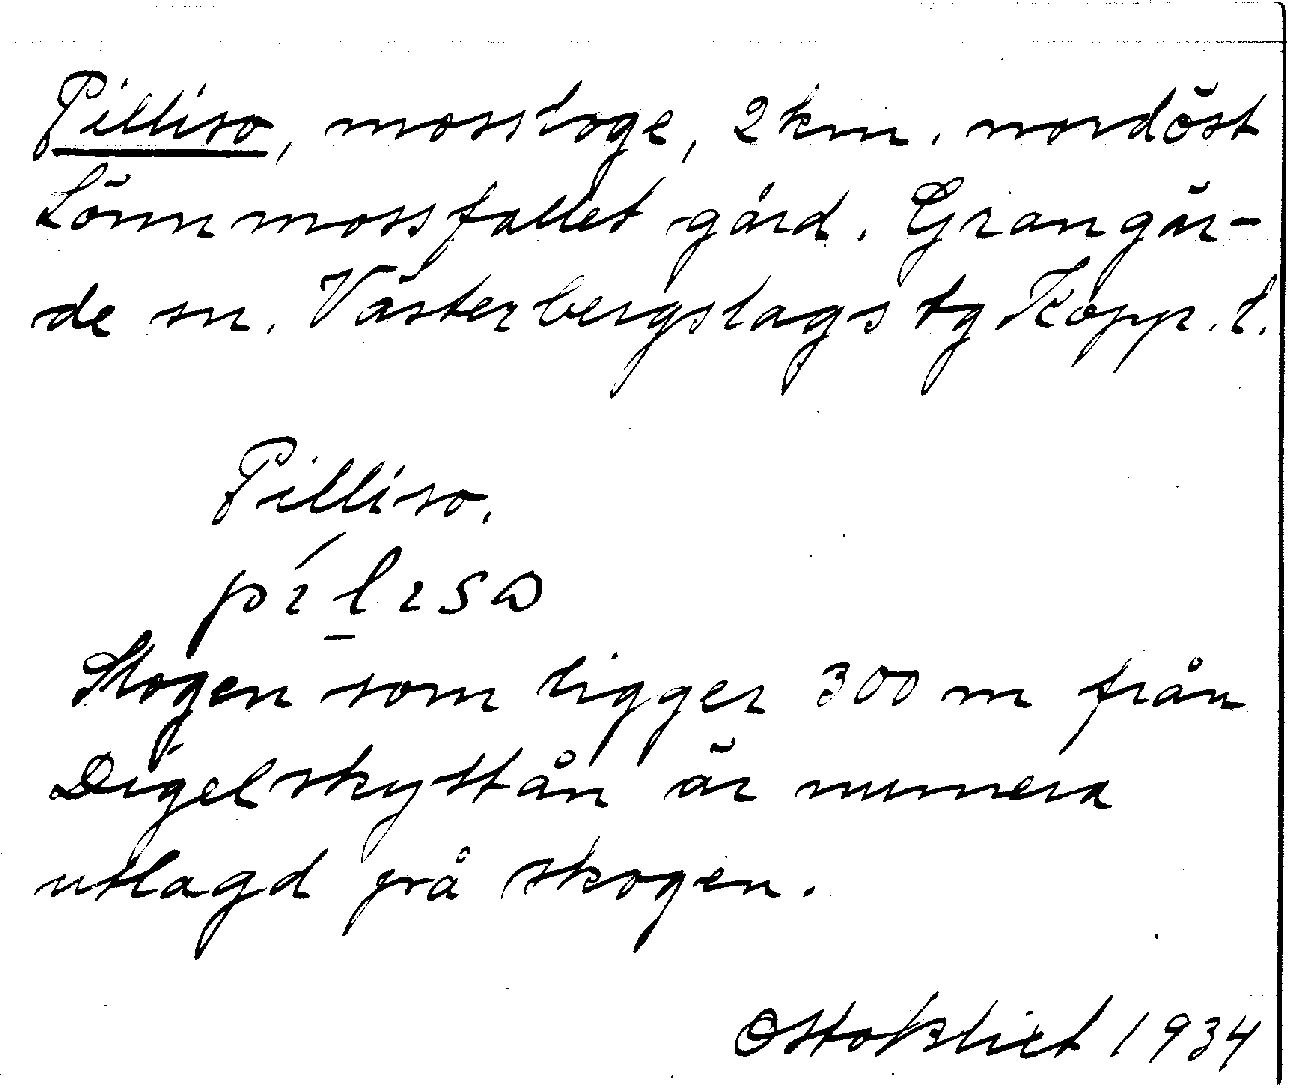 Pilliso, mossloge, 2km. nordöst
Lönnmossfallet gård. Grangär-
de sn. Västerbergslags tg Kopp. l.
Pilliso.
pílısω
Slogen som ligger 300 m från
Digelskyttån är numera
utlagd på skogen.
Otto Blixt 1934